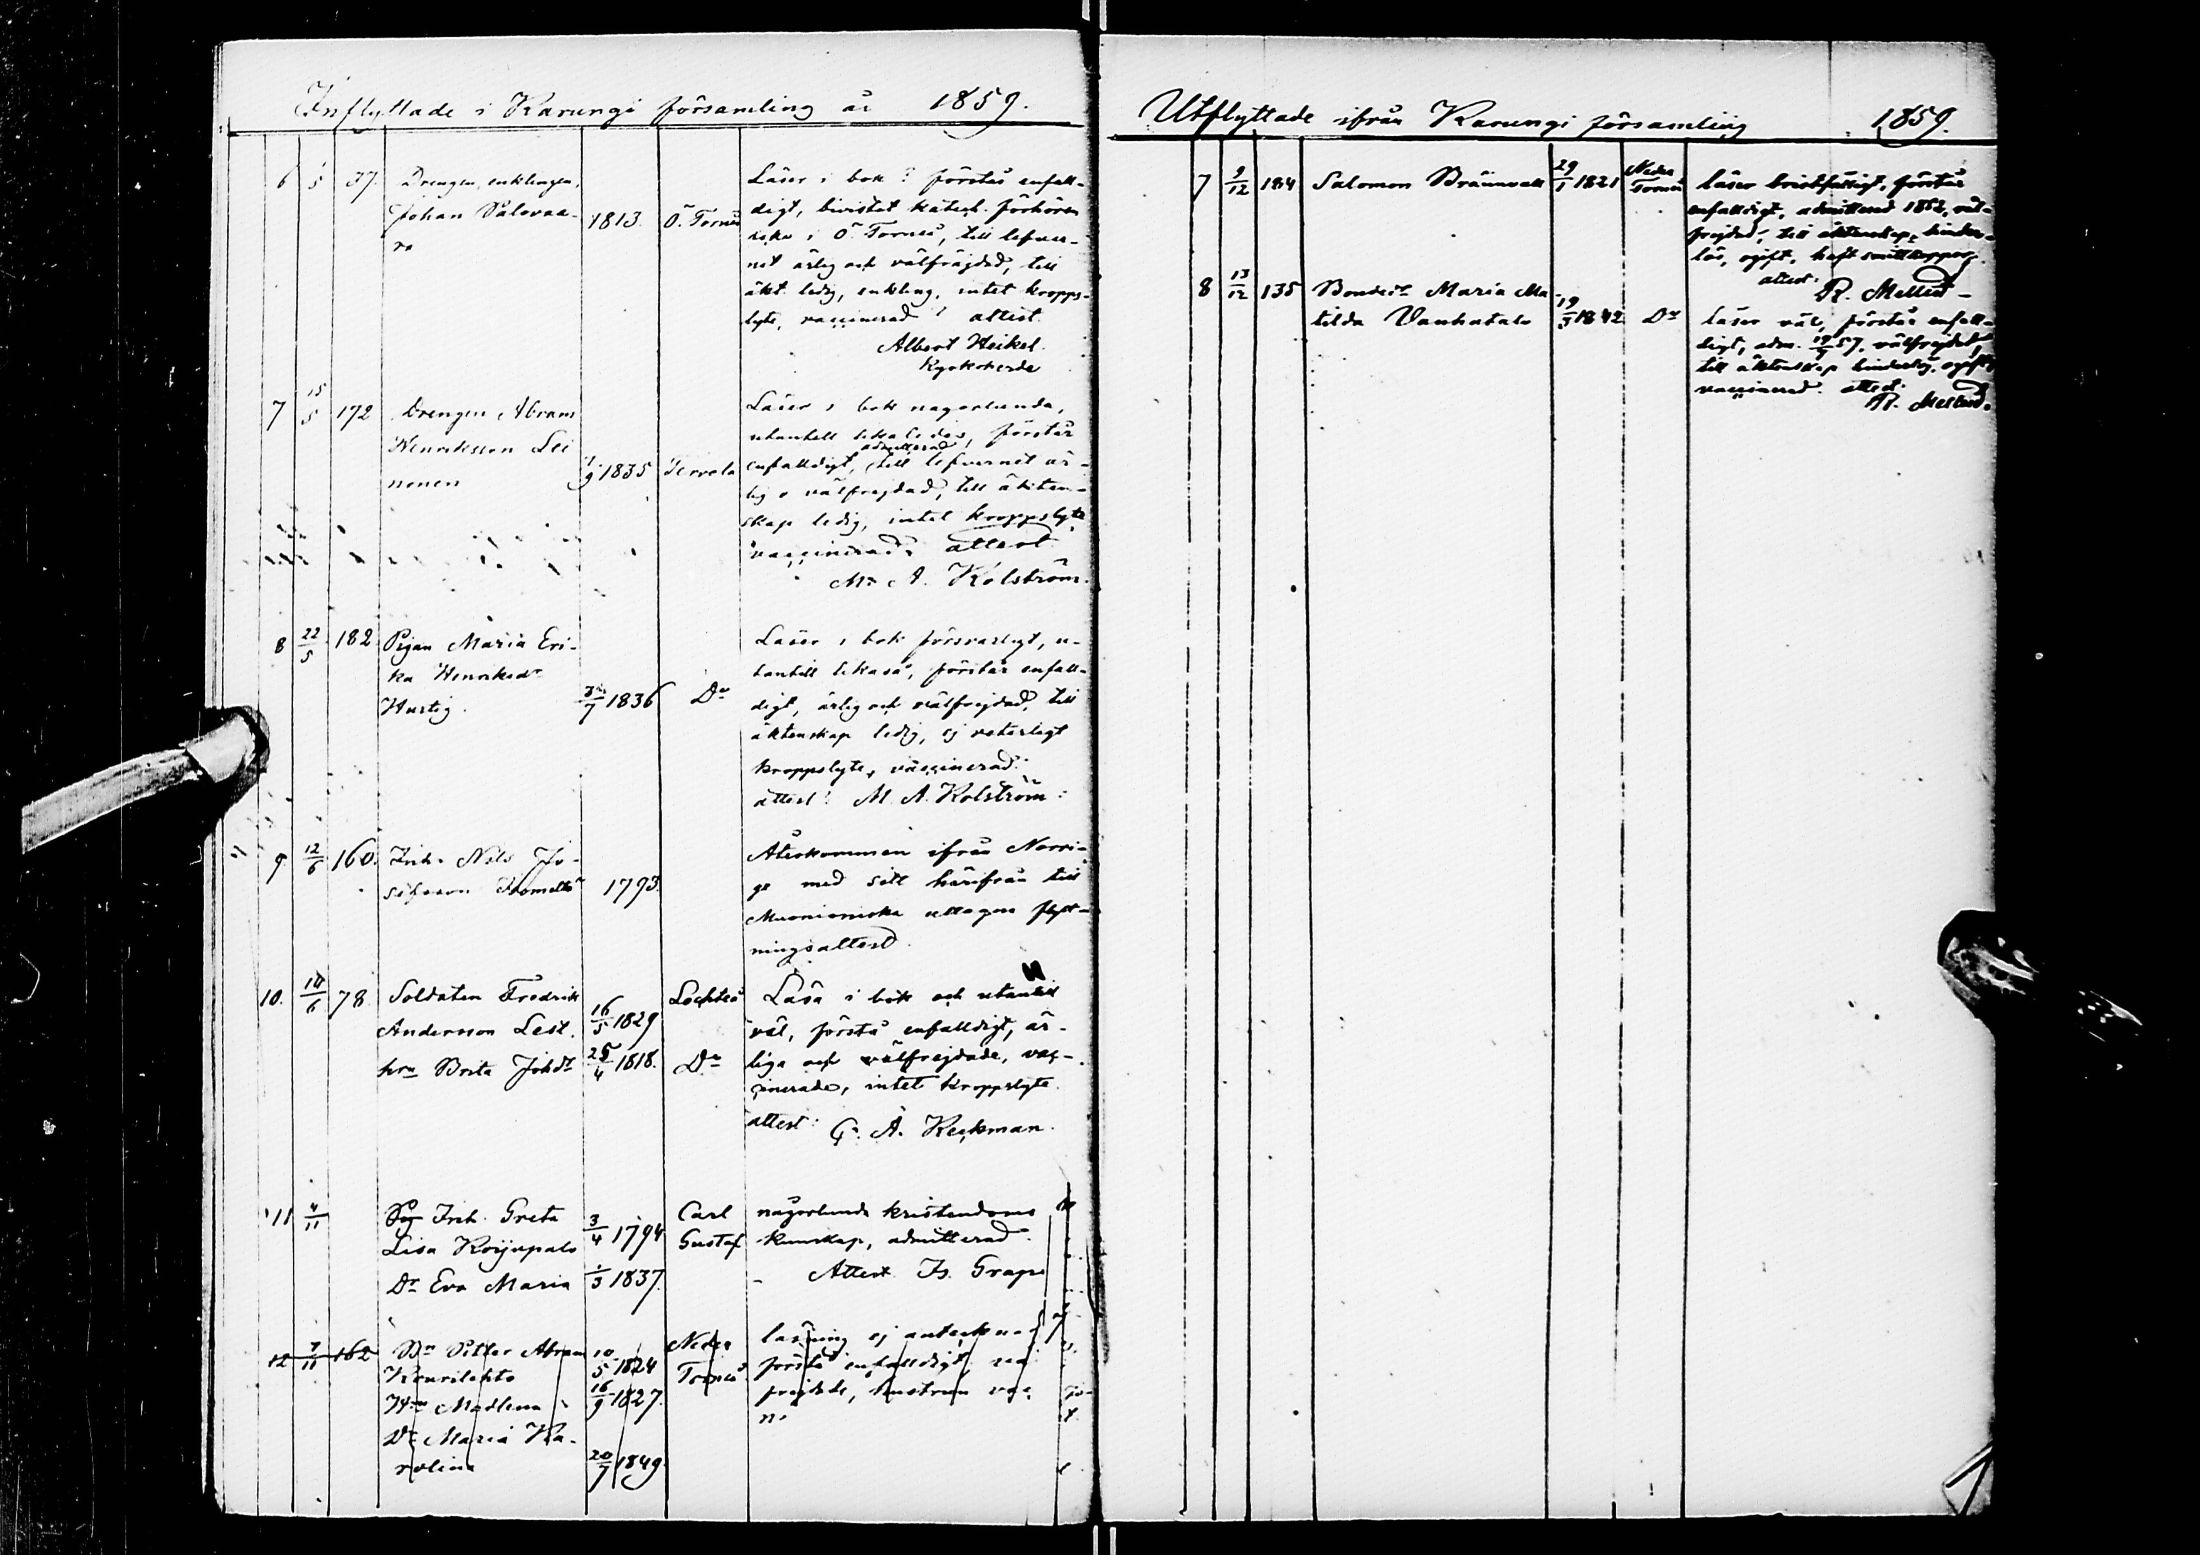 Inflyttade i Karungi församling år 1859.
6 5 37. Drengen, enklingen,
Johan Salovaa-
ra
1813. Ö. Torneå
Läser i bok : förstår enfall-
digt, bivistat katech. förhören
i Ö. Torneå, till lefver-
net ärlig och välfräjdad, till
äkt. ledig, enkling, intet kropps-
lyte, vaccinerad attest.
Albert Heikel.
Kyrkoherde
7 15/5 172 Drengen Abram
Henriksson Lei
nonen
1/9 1835 Tervola
Läser i bok någorlunda,
utantill lika ledes, förstår
admitterad
enfalldigt, till lefvernet är-
lig o välfrejdad, till äkten-
skap ledig, intet kroppslyte
vaccinerad, attest
M. A. Kolström.
8 22/5 182 Pigan Maria Eri-
ka Henriksdr
Hurtig.
/7 1836 Do
Läser i bok försvarligt, u-
tantill likaså, förstår enfall-
digt, ärlig och välfrejdad, till
äktenskap ledig, ej veterligt
kroppslyte, vaccinerad.
attest: M. A. Kolström:
9 12/6 160. Inh. Nils Jo-
sefsson
1793.
Återkommen ifrån Norri-
ge med sitt härifrån till
Muonioniska uttagne flytt-
ningsattest.
10. 10/6 78 Soldaten Fredrik
Andersson Lest.
hru Brita Johdr
16/5 1829
25/4 1818.
Lochteå
Do
Läsa i bok och utantill
väl, förstå enfalldigt, är-
liga och välfrejdade, vac-
cinerade, intet kroppslyte.
attest: G. A. Keckman.
11 4/11 Inh. Greta
Lisa Korjupalo
Dr Eva Maria
3/4 1794
1/3 1837.
Carl
Gustaf
någorlunda kristendoms
kunskap, admitterad.
Attest Is. Grape
12 7/11 162 Abram
Kaurilehto
Hru Madlena
Dr Maria Ka-
rolina
10/5 1824
16/9 1827.
20/7 1849.
Neder
Torneå
läsning ej antecknad
förstå enfalldigt,
frejdade, hustrun vac
Utflyttade ifrån Karungi församling 1859.
7 9/12 184 Salomon Brännvall 29/1 1821 Neder
Torneå
läser bristfälligt, förstår
enfalldigt, admitterad 1852, väl-
frejdad, till äktenskap hinder-
lös, ogift, haft smittkoppor.
attest.
R. Mellin
8 13/12 135 Bondedr Maria Ma-
tilda Vanhatalo
19/3 1842 Do
läser väl, förstår enfall-
digt, adm. 19/7 57, välfrejdad,
till äktenskap hinderlös, ogift,
vaccinerad. attest.
R. Mellin.